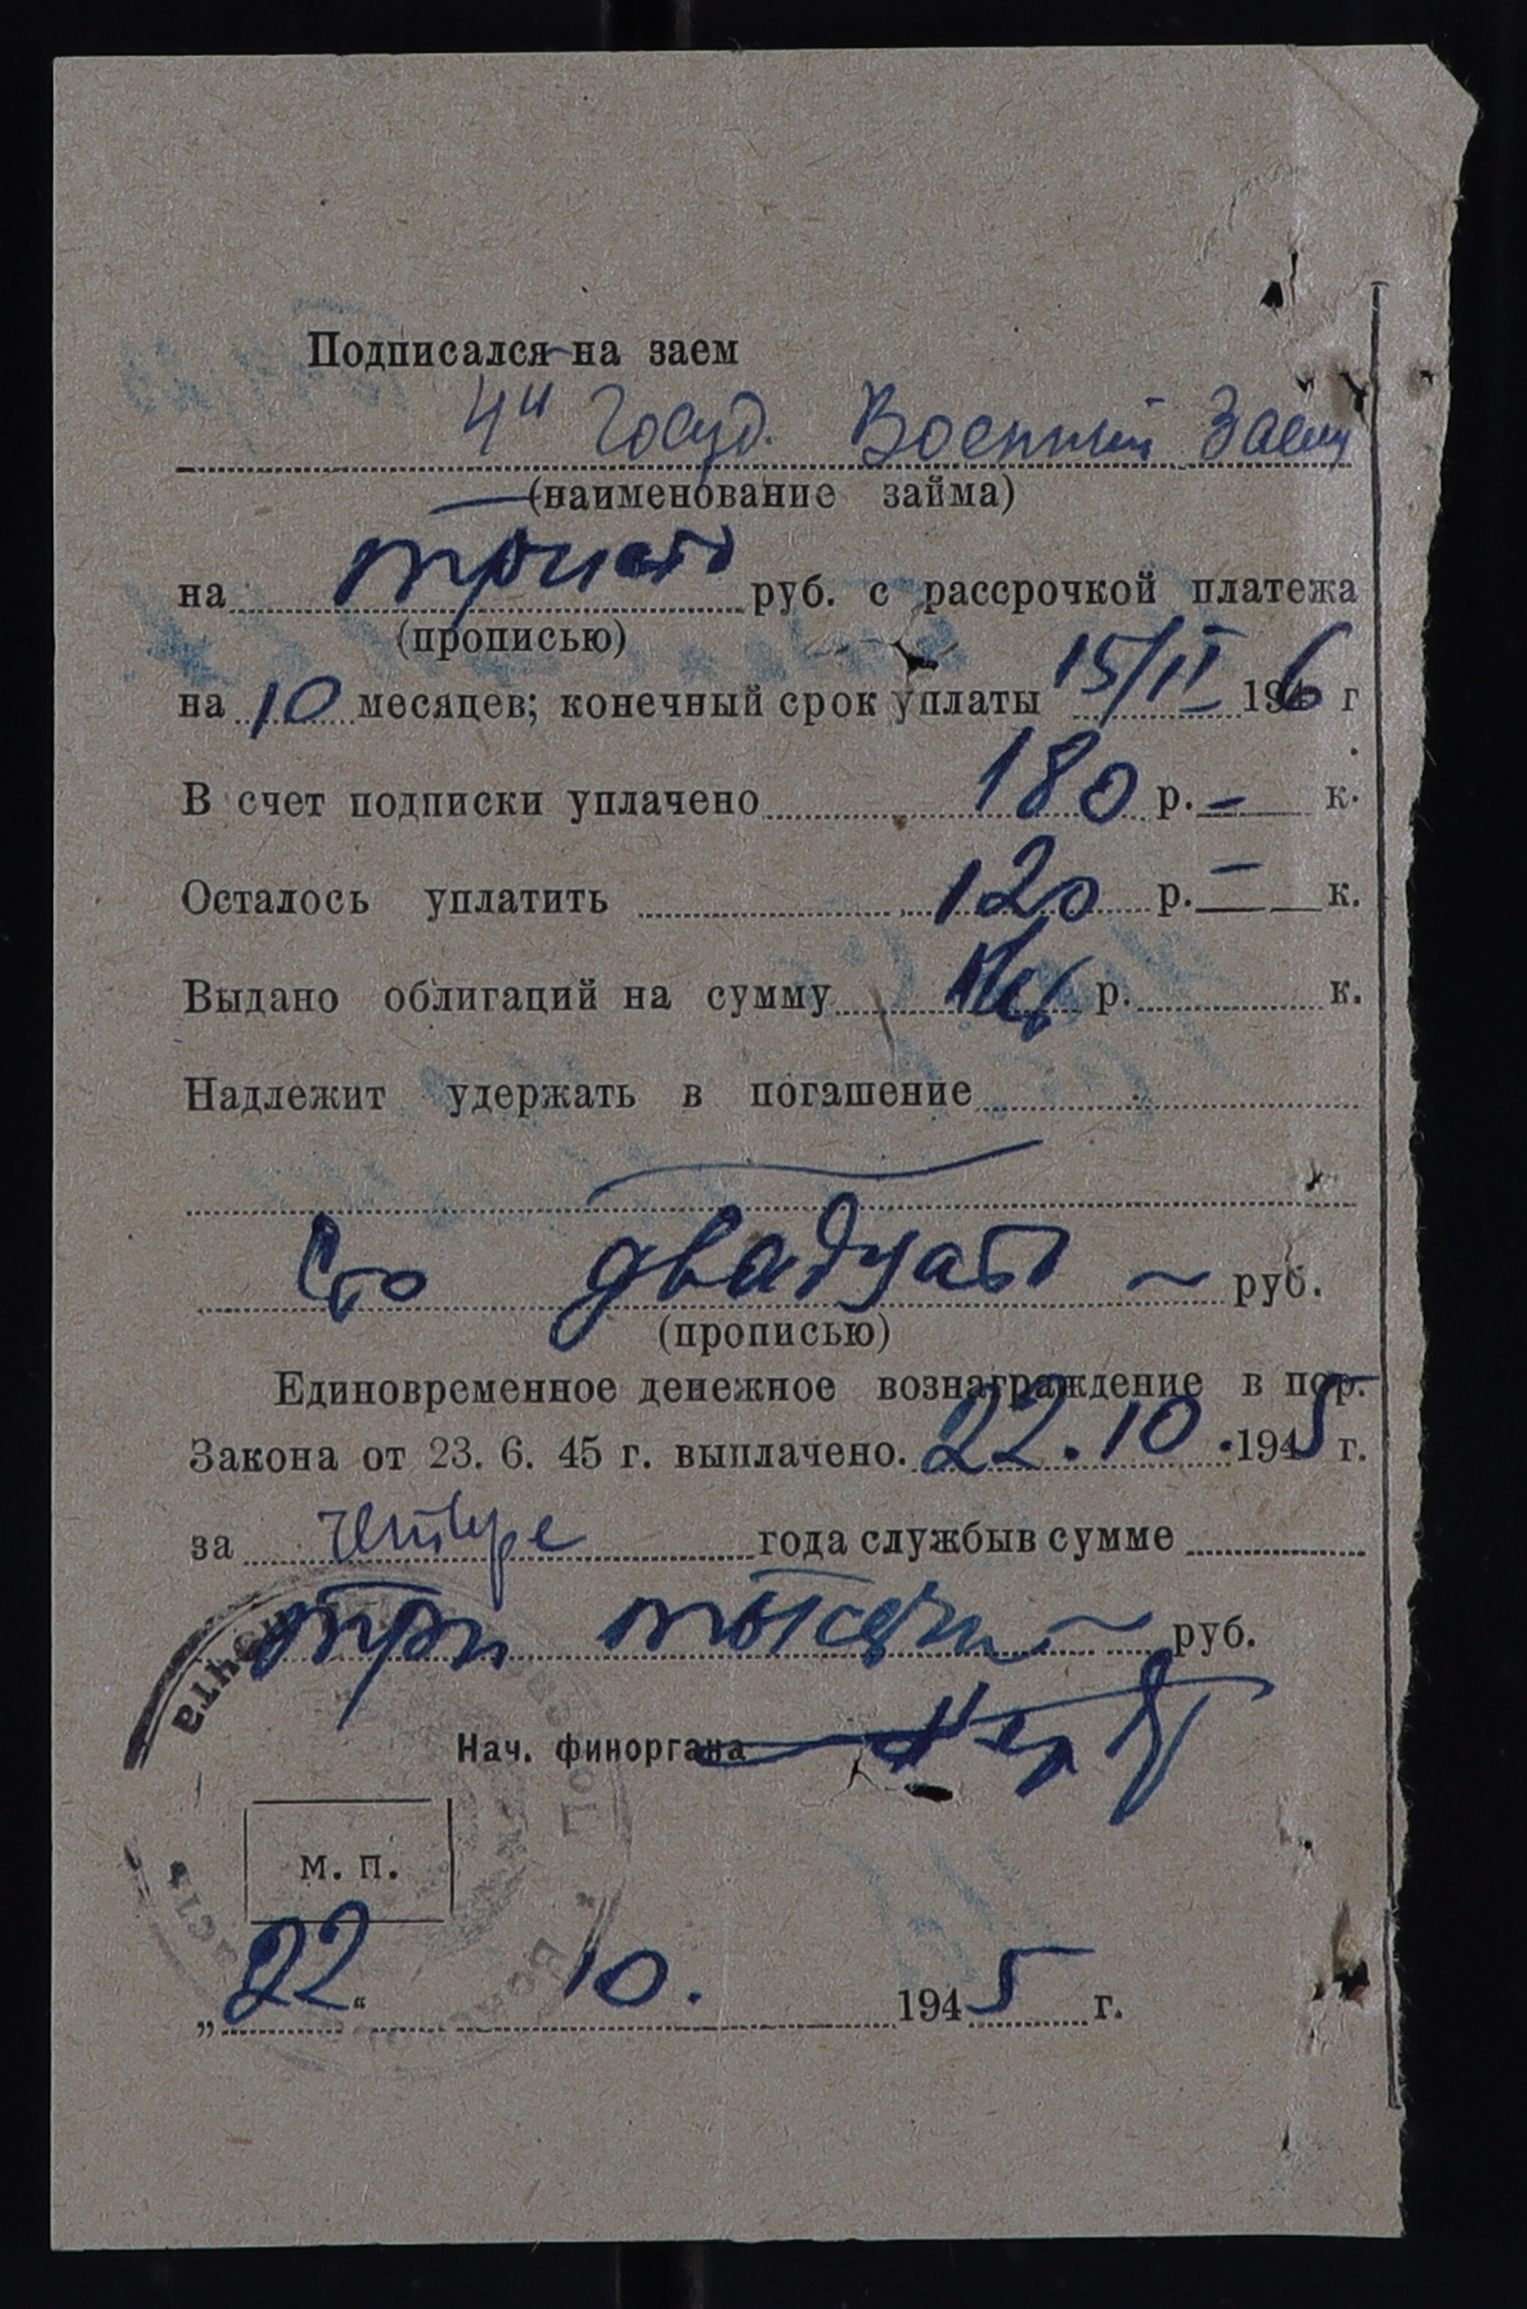 Подписался на заем
4й Госуд. Военный Заем
(наименование займа)
на триста руб. с рассрочкой платежа
(прописью)
на 10 месяцев; конечный срок уплаты 15/II 1946 г.
В счет подписки уплачено 180 р. – к.
Осталось уплатить 120 р. – к.
Выдано облигаций на сумму р. к.
Надлежит удержать в погашение
Сто двадцать ~ руб.
(прописью)
Единовременное денежное вознаграждение в пор.
Закона от 23. 6. 45 г. выплачено. 22.10.1945 г.
за четыре года службы в сумме
три тысячи ~ руб.
Нач. финоргана
м. п.
„22“ 10. 1945 г.